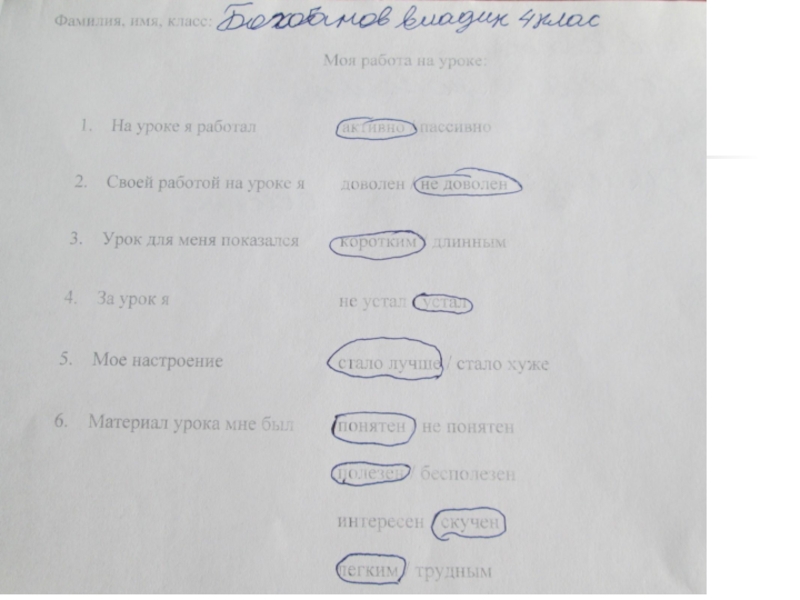 Фамилия, имя, класс: Бохобанов владик 4 клас
Моя работа на уроке:
1. На уроке я работал активно / пассивно
2. Своей работой на уроке я доволен / не доволен
3. Урок для меня показался коротким / длинным
4. За урок я не устал / устал
5. Мое настроение стало лучше / стало хуже
6. Материал урока мне был понятен / не понятен
полезен / бесполезен
интересен / скучен
легким / трудным